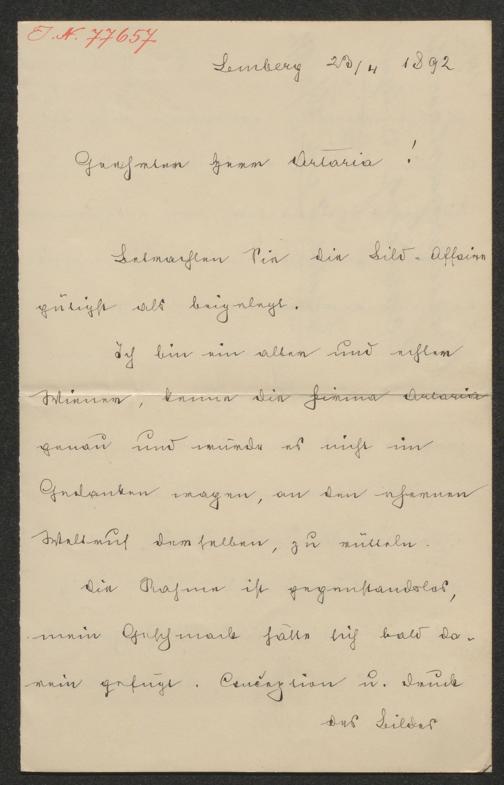 I. N. 77657
Lemberg 23/4 1892
Geehrter Herr Artaria!
Betrachten Sie die Bild-Affaire
gütigst als beigelegt.
Ich bin ein alter und echter
Wiener, kenne die Firma Artaria
genau und würde es nicht im
Gedanken wagen, an den ehernen
Weltruf derselben, zu rütteln.
Die Rahme ist gegenstandslos,
mein Geschmack hätte sich bald da-
rein gefügt. Conception u. Druck
des Bildes